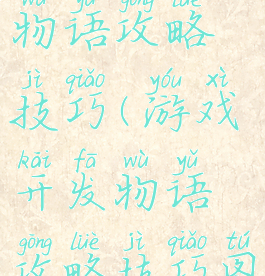 wù yǔ gōng lüè
物语攻略
jì qiǎo yóu xì
技巧(游戏
kāi fā wù yǔ
开发物语
gōng lüè jì qiǎo tú
攻略技巧图